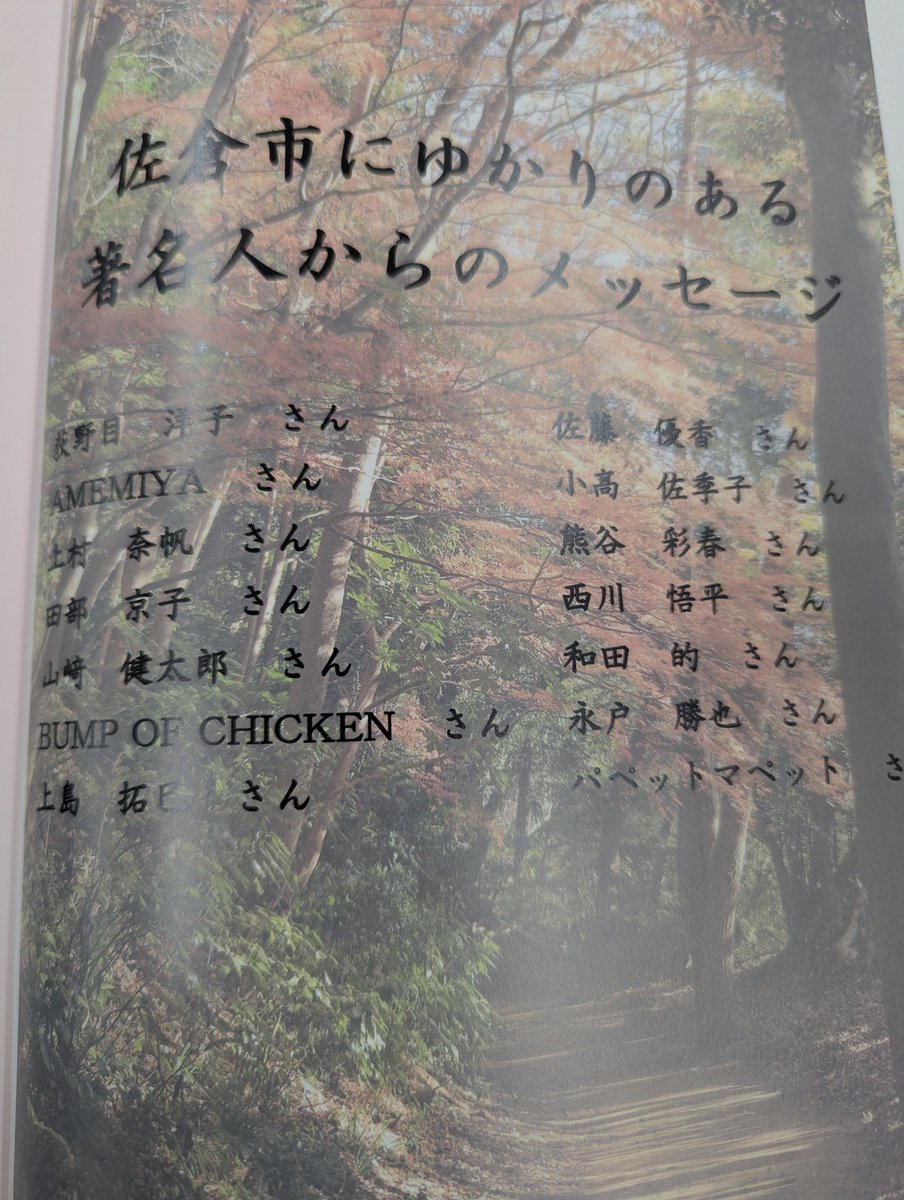 佐倉市にゆかりのある
著名人からのメッセージ
荻野目 洋子 さん
AMEMIYA さん
土村 奈帆 さん
田部 京子 さん
山﨑 健太郎 さん
BUMP OF CHICKEN さん
上島 拓巳 さん
佐藤 優香 さん
小髙 佐季子 さん
熊谷 彩春 さん
西川 悟平 さん
和田 的 さん
永戸 勝也 さん
パペットマペット さ